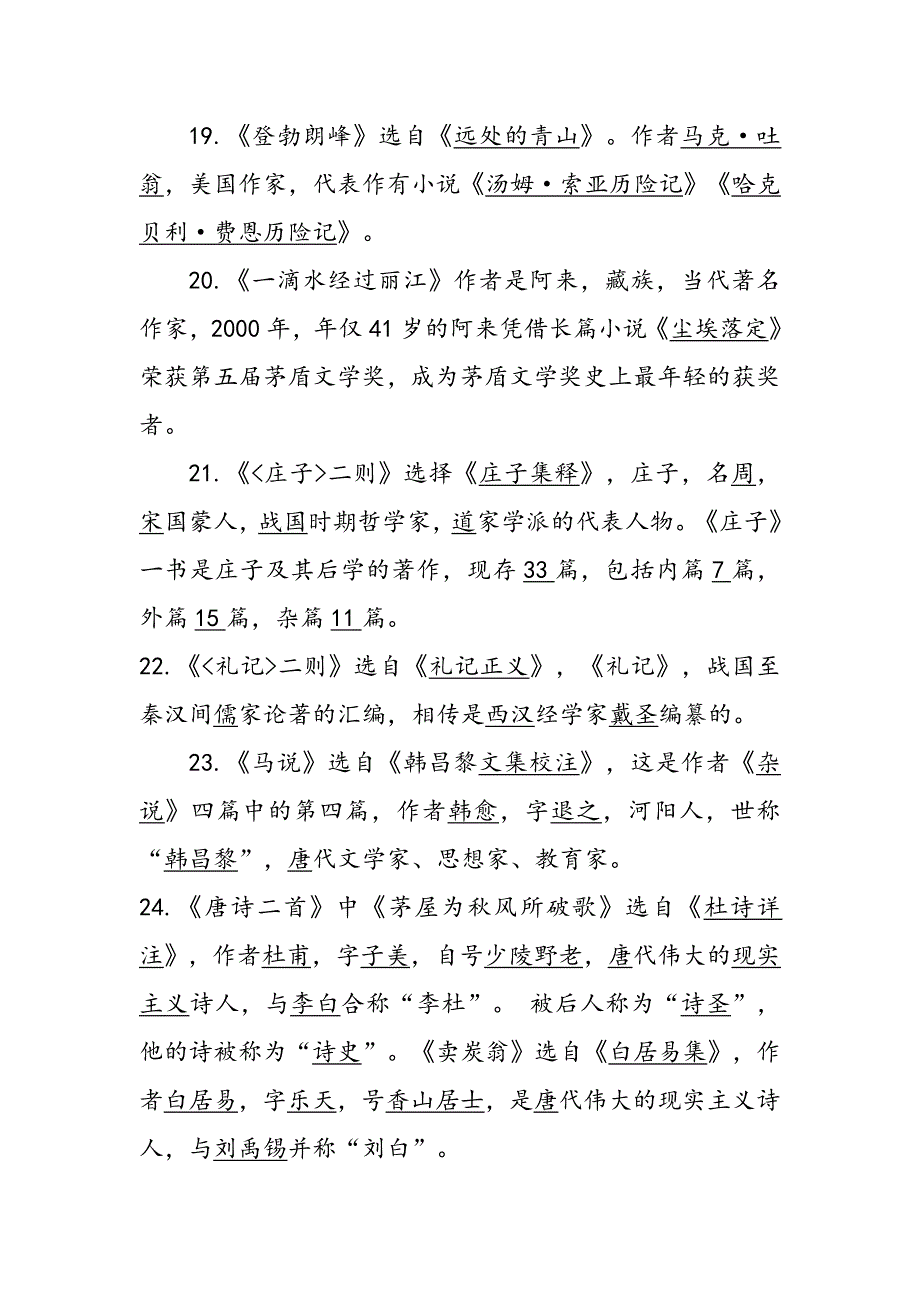 19.《登勃朗峰》选自《远处的青山》。作者马克·吐
翁，美国作家，代表作有小说《汤姆·索亚历险记》《哈克
贝利·费恩历险记》。
20.《一滴水经过丽江》作者是阿来，藏族，当代著名
作家，2000 年，年仅 41 岁的阿来凭借长篇小说《尘埃落定》
荣获第五届茅盾文学奖，成为茅盾文学奖史上最年轻的获奖
者。
21.《<庄子>二则》选择《庄子集释》，庄子，名周，
宋国蒙人，战国时期哲学家，道家学派的代表人物。《庄子》
一书是庄子及其后学的著作，现存 33 篇，包括内篇 7 篇，
外篇 15 篇，杂篇 11 篇。
22.《<礼记>二则》选自《礼记正义》，《礼记》，战国至
秦汉间儒家论著的汇编，相传是西汉经学家戴圣编纂的。
23.《马说》选自《韩昌黎文集校注》，这是作者《杂
说》四篇中的第四篇，作者韩愈，字退之，河阳人，世称
“韩昌黎”，唐代文学家、思想家、教育家。
24.《唐诗二首》中《茅屋为秋风所破歌》选自《杜诗详
注》，作者杜甫，字子美，自号少陵野老，唐代伟大的现实
主义诗人，与李白合称“李杜”。 被后人称为“诗圣”，
他的诗被称为“诗史”。《卖炭翁》选自《白居易集》，作
者白居易，字乐天，号香山居士，是唐代伟大的现实主义诗
人，与刘禹锡并称“刘白”。